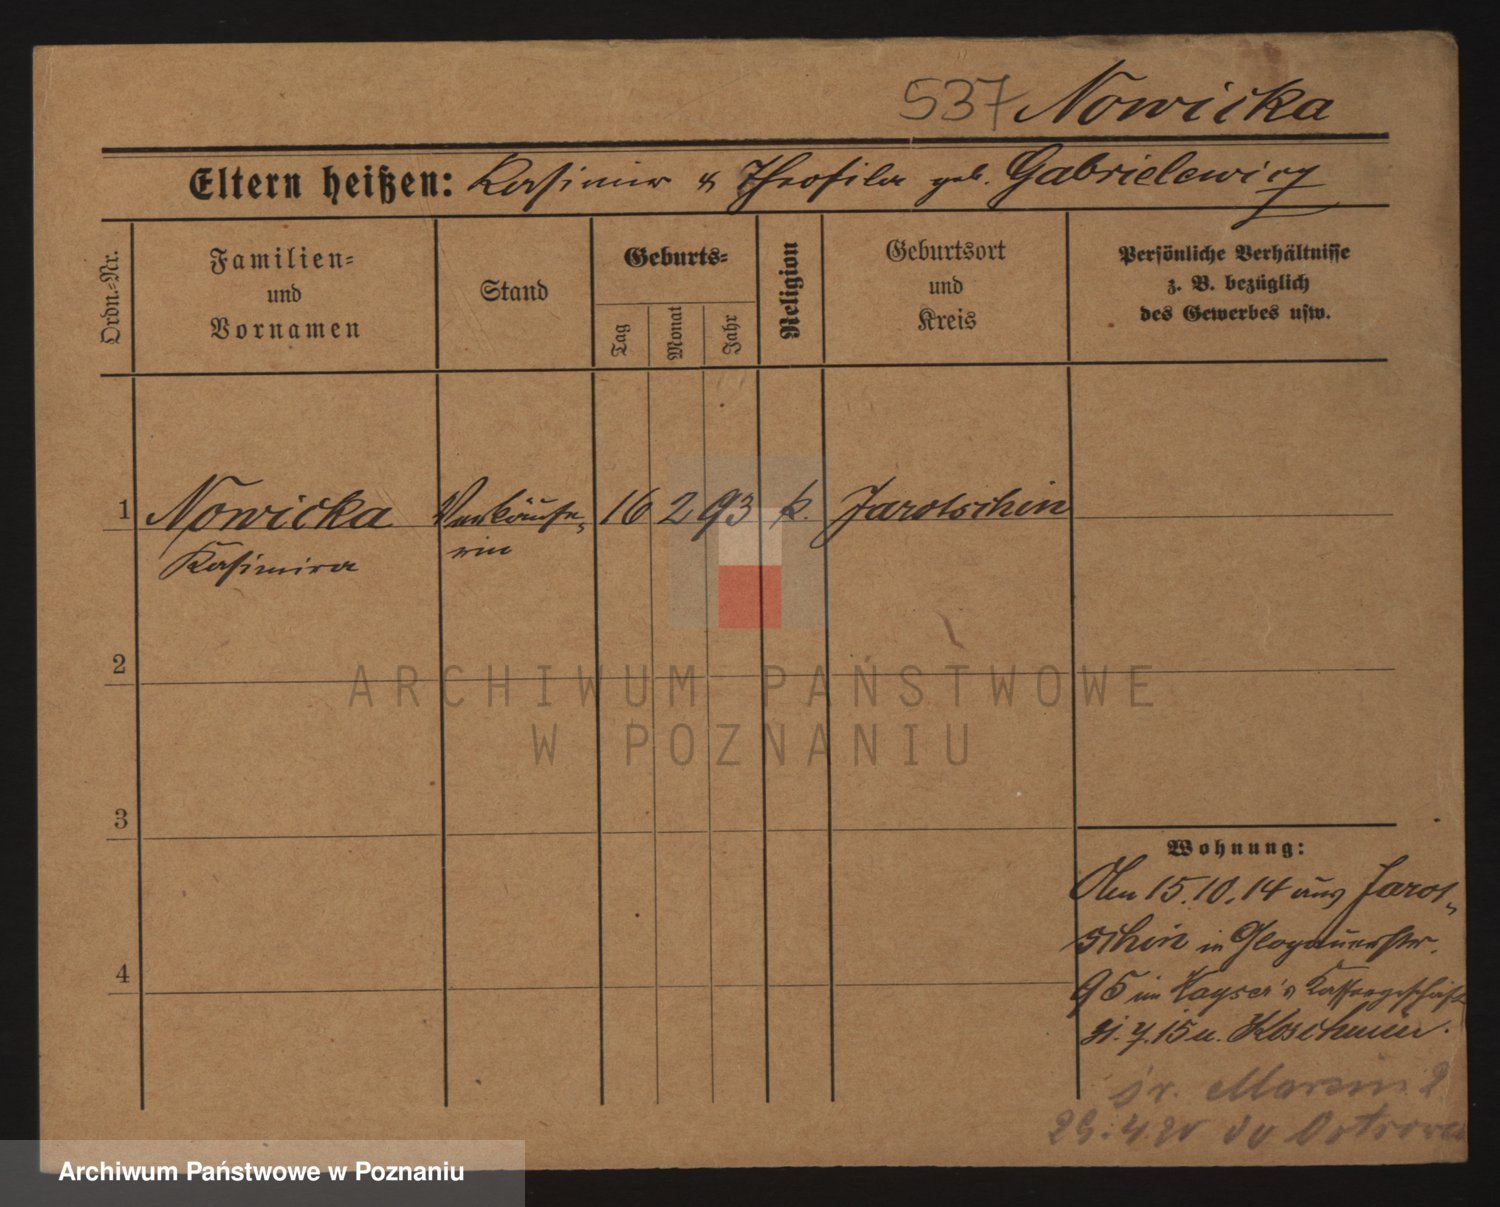 537 Nowicka
Eltern heißen: Kasimir & Theofila geb. Gabrielewicz
Ordn.-Nr.
Familien-
und
Vornamen
Stand
Geburts-
Tag
Monat
Jahr
Religion
Geburtsort
und
Kreis
Persönliche Verhältnisse
z. B. bezüglich
des Gewerbes usw.
1 Nowicka Verkäufe- 16 2 93 k. Jarotschin
Kasimira rin
2
ARCHIWUM PAŃSTWOWE
W POZNANIU
3
4
Wohnung:
15.10.14 aus Jarot-
schin in Glogauerstr.
95 im Kayser's Kaffeegeschäft
7.15 n. Koschmin.
św. Marcin
29.4.20 do Ostrowa
Archiwum Państwowe w Poznaniu